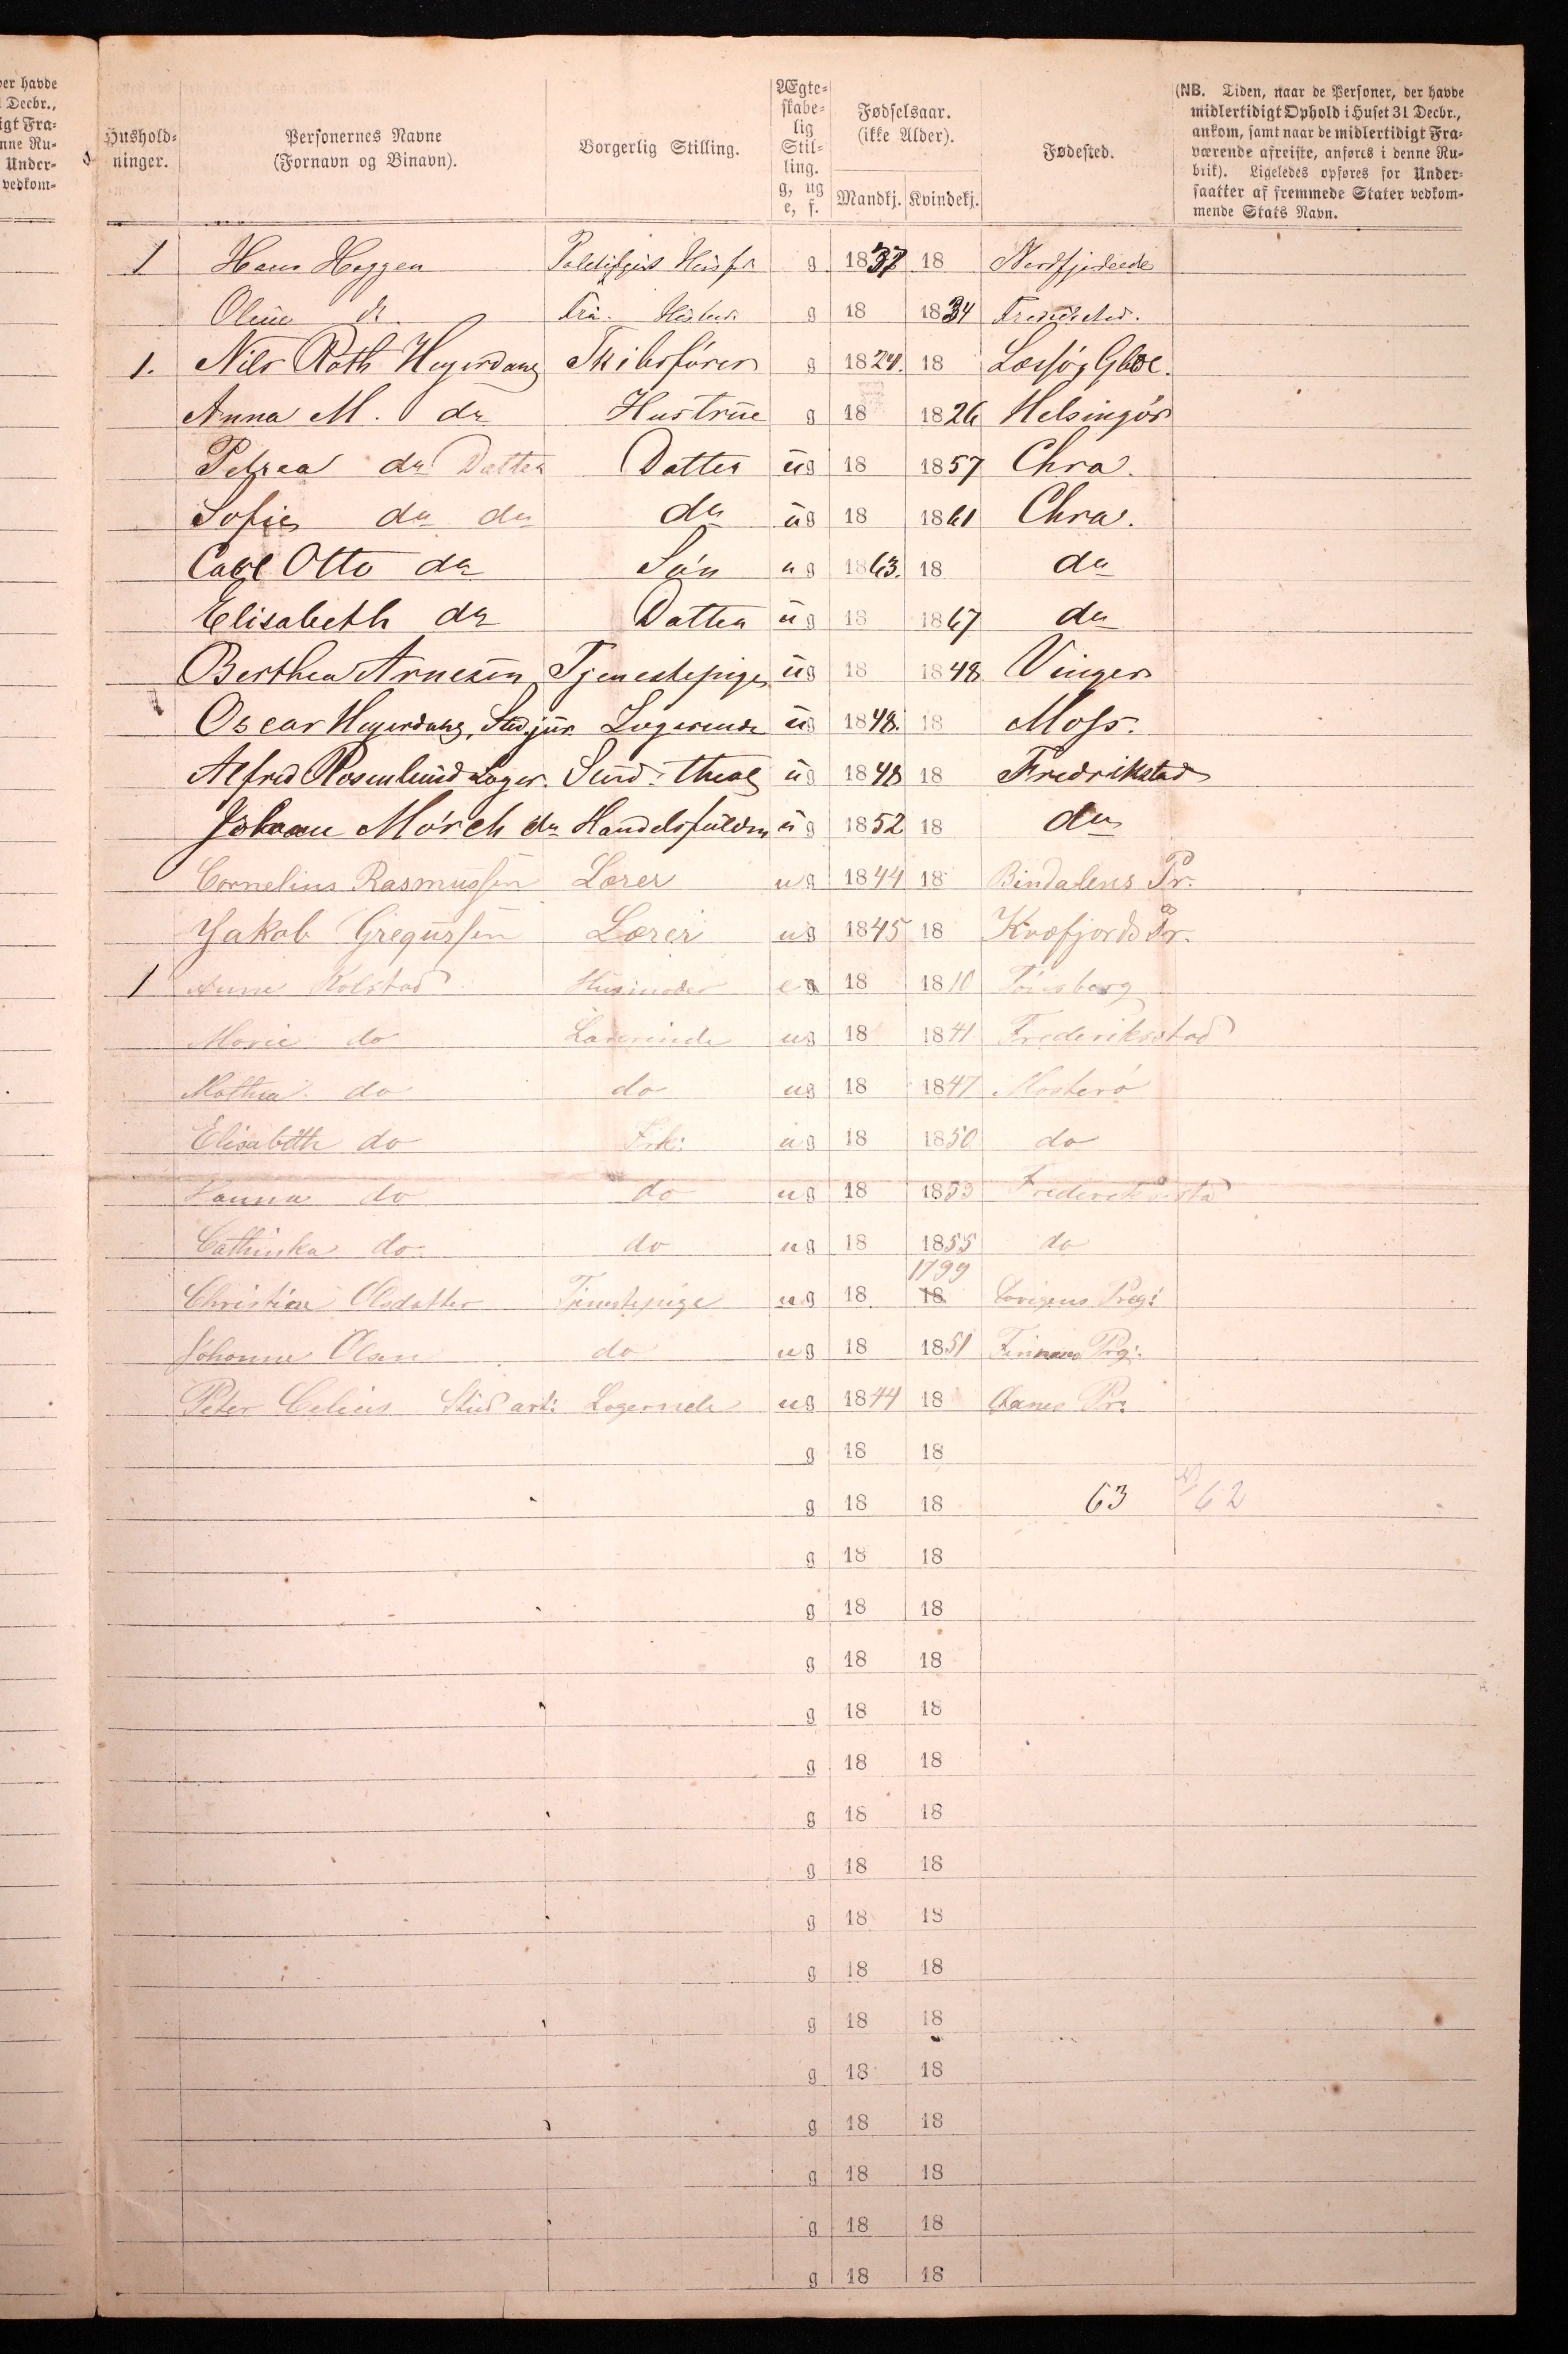 ver havde
1 Decbr.,
igt Fra-
nne Ru-
Under-
vedkom-
Hushold-
ninger.
Personernes Navne
(Fornavn og Binavn).
Borgerlig Stilling.
Ægte-
skabe-
lig
Stil-
ling.
g, ug
e, f.
Fødselsaar.
(ikke Alder).
Mandkj. Kvindekj.
Fødested.
(NB. Tiden, naar de Personer, der havde
midlertidigt Ophold i Huset 31 Decbr.,
ankom, samt naar de midlertidigt Fra-
værende afreiste, anføres i denne Ru-
brik). Ligeledes opføres for Under-
saatter af fremmede Stater vedkom-
mende Stats Navn.
1 Hans Haggen g 1837 18
Oline g 18 1834
1. Nils Roth Heyerdahl Skibsfører g 1824. 18
Anna M. do Hustrue g 18 1826 Helsingör
Petrea do Datter Datter ug 18 1857 Chra.
Sofie do do do ug 18 1861 Chra.
Carl Otto do Sön ug 1863. 18 do
Elisabeth do Datter ug 18 1867 do
Berthea Arnesen Tjenestepige ug 18 1848 Vinger
Oscar Heyerdahl, Stud. jur. Logerende ug 1848. 18 Moss.
Alfred Rosenlund Loger. Stud. theol ug 1848 18 Fredrikstad
Johan Mörch do Handelsfuldm ug 1852 18 do
Cornelius Rasmussen Lærer ug 1844 18 Bindalens Pr.
Jakob Gregussen Lærer ug 1845 18 Kvæfjords Pr.
1 Anne Kolstad Husmoder e 18 1810 Tönsberg
Marie do Lærerinde ug 18 1841 Frederikstad
Mathea do do ug 18 1847 Mosterö
Elisabeth do Frk: ug 18 1850 do
Hanna do do ug 18 1853 Frederikstad
Cathinka do do ug 18 1855 do
1799
Christine Olsdatter Tjenestepige ug 18 18
Johanne Olsen do ug 18 1851 Prg:
Peter Celius Stud art: Logerende ug 1844 18 Aanes Pr:
g 18 18
g 18 18 63 62
g 18 18
g 18 18
g 18 18
g 18 18
g 18 18
g 18 18
g 18 18
g 18 18
g 18 18
g 18 18
g 18 18
g 18 18
g 18 18
g 18 18
g 18 18